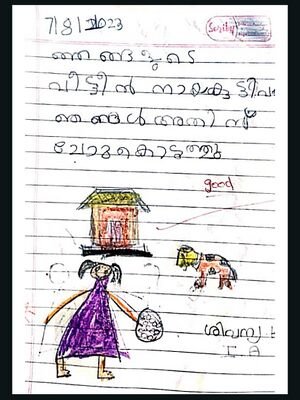 7/8/2023
ഞങ്ങളുടെ
വീട്ടിൽ നായകുട്ടിവ
ഞങ്ങൾ അതിന്
ചോറുകൊടുത്തു
good
I A